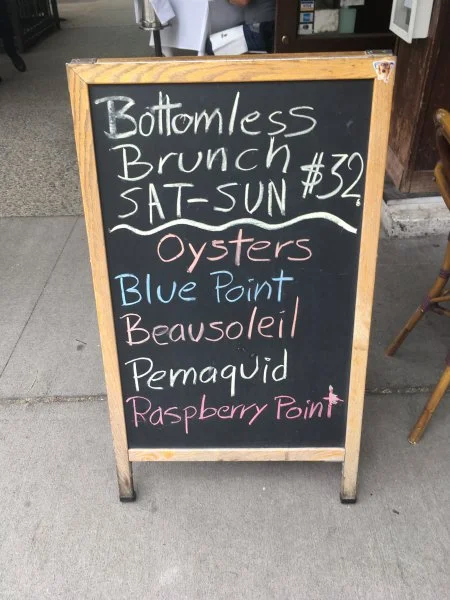 Bottomless
Brunch
SAT-SUN #32
Oysters
Blue Point
Beausoleil
Pemaquid
Raspberry Point